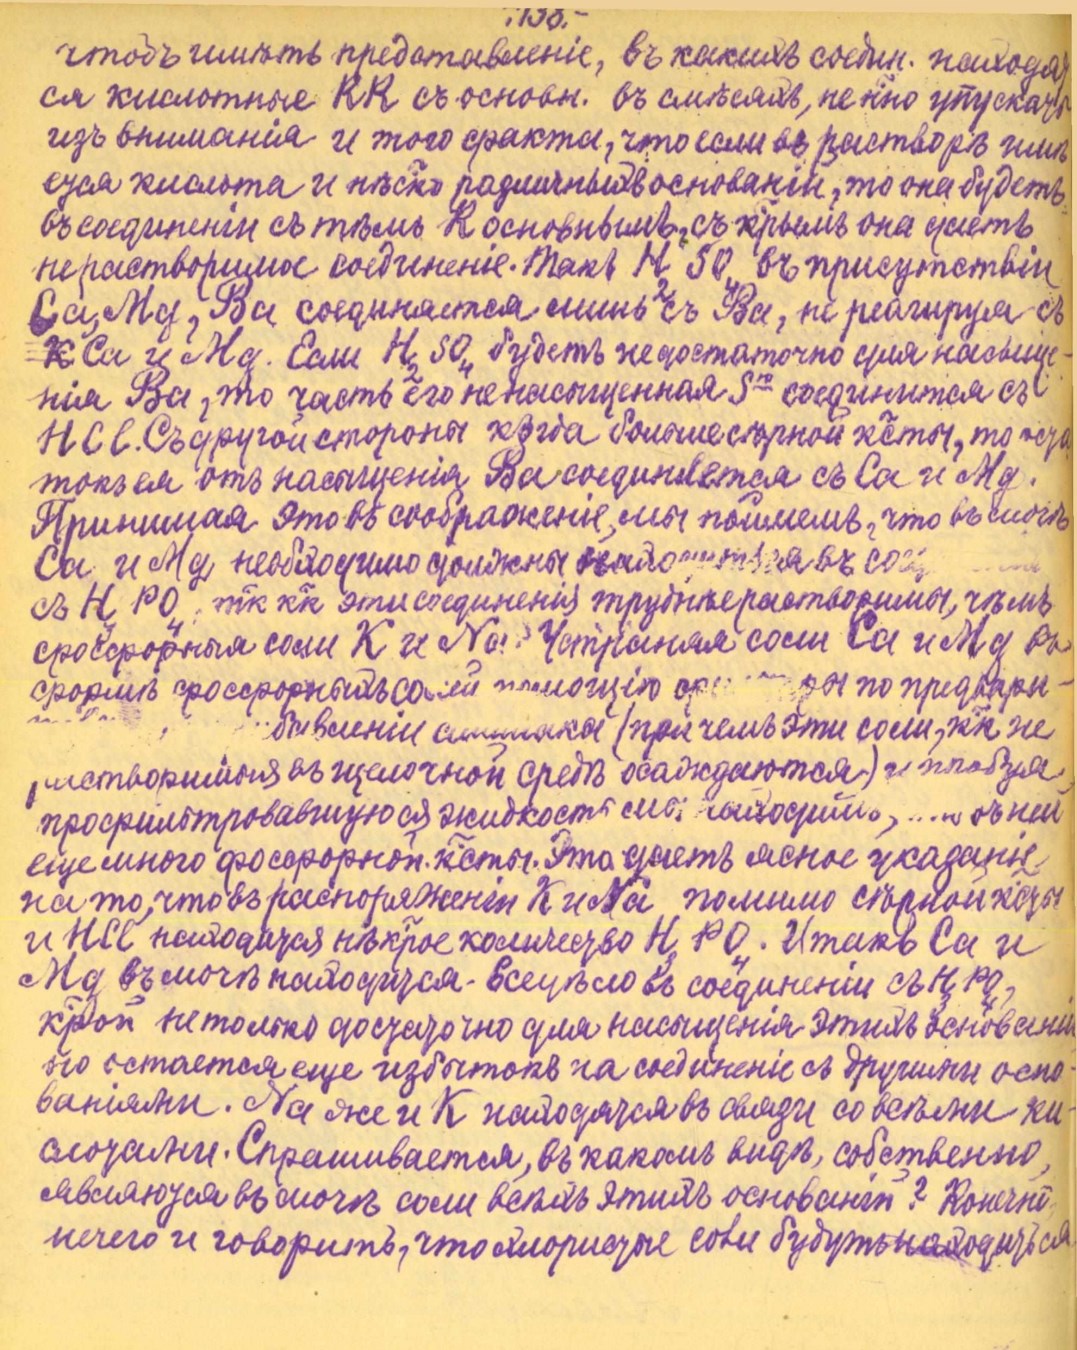 138.
чтобъ имѣть представленіе, въ какихъ соедин. находят
ся кислотные RR съ основн. въ смѣсяхъ, не нно упускать
изъ вниманія и того факта, что если въ растворѣ имѣ
ется кислота и нѣско различныхъ основаній, то она будетъ
въ соединеніи съ тѣмъ R основнымъ, съ крымъ она даетъ
нерастворимое соединеніе. Такъ H2SO4 въ присутствіи
Ca, Mg, Ba соединяется лишь съ Ba, не реагируя съ
Ca и Mg. Если H2SO4 будетъ недостаточно для насыще-
нія Ba, то часть его ненасыщенная соединится съ
HCl. Съ другой стороны когда больше сѣрной ксты, то оста
токъ ея отъ насыщенія Ba соединяется съ Ca и Mg.
Принимая это въ соображеніе, мы поймемъ, что въ мочѣ
Ca и Mg необходимо должны находиться въ
съ H3PO4, тк кк эти соединенія труднѣе растворимы, чѣмъ
фосфорныя соли K и Na. Устраняя соли Ca и Mg въ
формѣ фосфорныхъ солей помощію по предвари-
бавленіи амміака (при чемъ эти соли, кк не
растворимыя въ щелочной средѣ осаждаются) и
профильтровавшуюся жидкость мы находимъ, въ ней
еще много фосфорной ксты. Это даетъ ясное указаніе
на то, что въ распоряженіи K и Na помимо сѣрной ксты
и HCl находится нѣкрое количество H3PO4. Итакъ Ca и
Mg въ мочѣ находится всецѣло въ соединеніи съ H3PO4,
крой не только достаточно для насыщенія этихъ основаній
но остается еще избытокъ на соединеніе съ другими осно-
ваніями. Na же и K находятся въ связи со всѣми ки-
слотами. Спрашивается, въ какомъ видѣ, собственно,
являются въ мочѣ соли всѣхъ этихъ основаній? Конечно,
нечего и говорить, что хлористые соли будутъ находиться